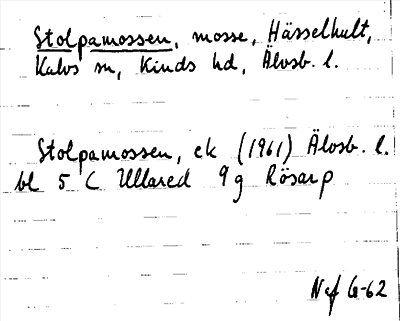 Stolpamossen, mosse, Hässelhult,
Kalvs sn, Kinds hd, Älvsb. l.
Stolpamossen, ek (1961) Älvsb. l.
bl 5 C Ullared 9g Rösarp
Naf G-62